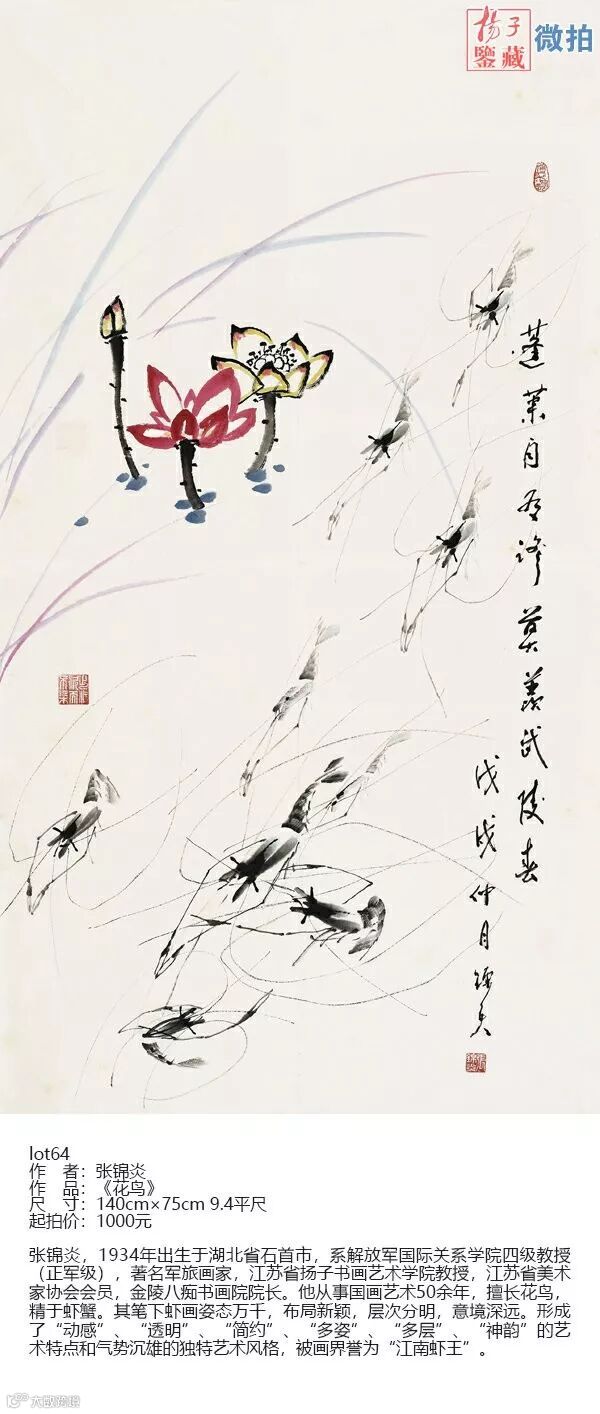 揚子
鑒藏
微拍
蓬莱自有游莫羡武陵春
戊戌仲月锦炎
lot64
作　者：张锦炎
作　品：《花鸟》
尺　寸：140cm×75cm 9.4平尺
起拍价：1000元
张锦炎，1934年出生于湖北省石首市，系解放军国际关系学院四级教授
（正军级），著名军旅画家，江苏省扬子书画艺术学院教授，江苏省美术
家协会会员，金陵八痴书画院院长。他从事国画艺术50余年，擅长花鸟，
精于虾蟹。其笔下虾画姿态万千，布局新颖，层次分明，意境深远。形成
了“动感”、“透明”、“简约”、“多姿”、“多层”、“神韵”的艺
术特点和气势沉雄的独特艺术风格，被画界誉为“江南虾王”。
大欧跨境